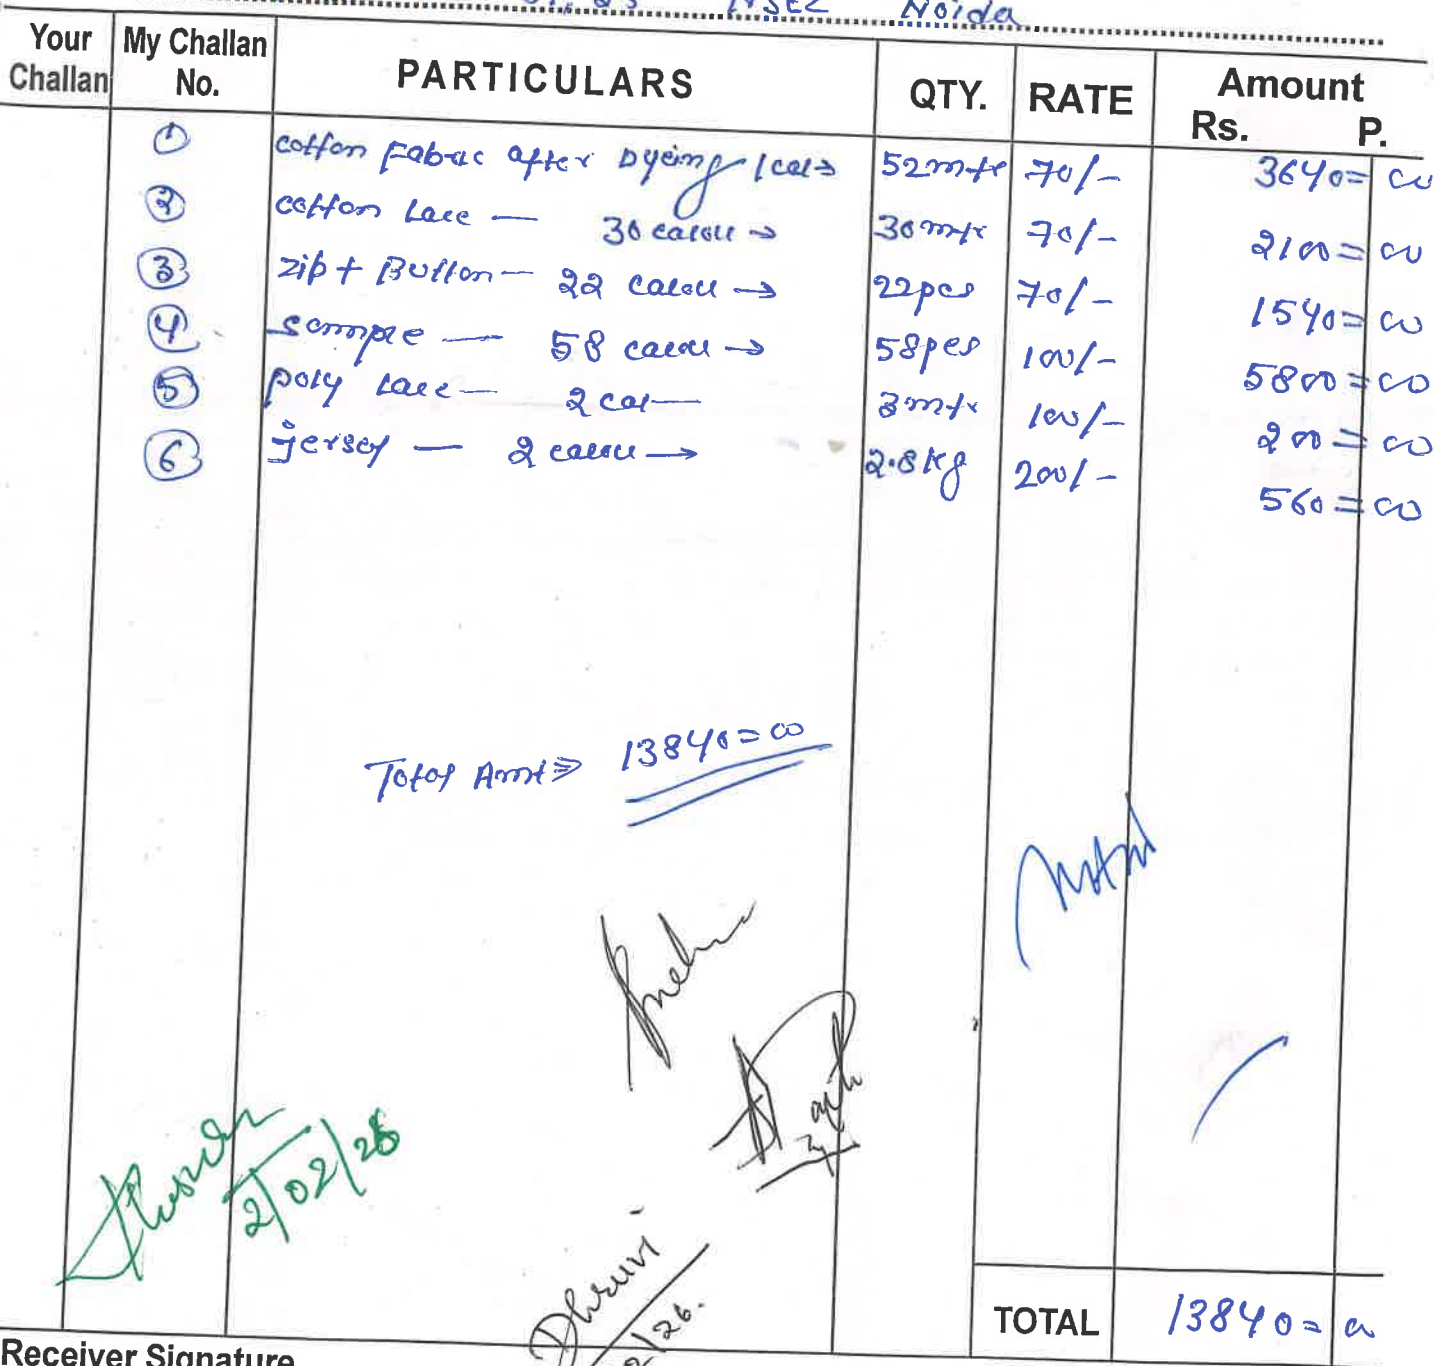 Noida
Your Challan | My Challan No. | PARTICULARS | QTY. | RATE | Amount Rs. P.
1 cotton Fabric after Dyeing 1 col → 52 mtr 70/- 3640=00
2 cotton Lace — 30 colour → 30 mtr 70/- 2100=00
3 zip + Button — 22 colour → 22pcs 70/- 1540=00
4 sample — 58 colour → 58pcs 100/- 5800=00
5 poly Lace — 2 col — 3 mtr 100/- 200=00
6 jersey — 2 colour → 2.8 kg 200/- 560=00
Total Amt ⇒ 13840=00
2/02/26
Dhruvi
/26.
TOTAL 13840=00
Receiver Signature